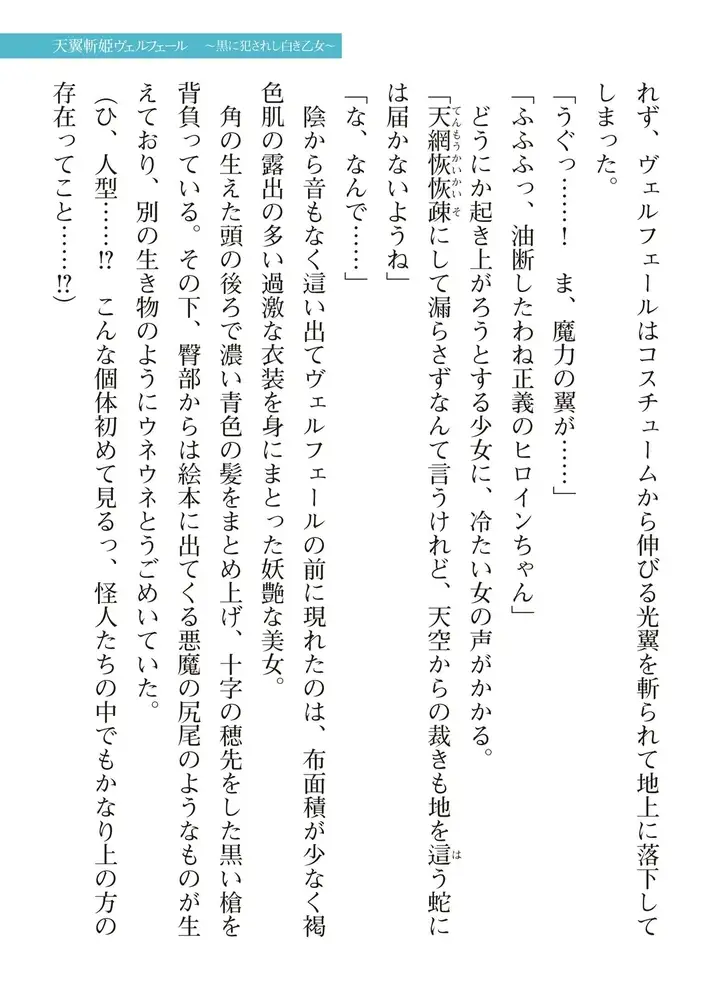 天翼斬姫ヴェルフェール　～黒に犯されし白き乙女～
れず、ヴェルフェールはコスチュームから伸びる光翼を斬られて地上に落下して
しまった。
「うぐっ……！　ま、魔力の翼が……」
「ふふふっ、油断したわね正義のヒロインちゃん」
　どうにか起き上がろうとする少女に、冷たい女の声がかかる。
「天網恢恢疎にして漏らさずなんて言うけれど、天空からの裁きも地を這う蛇に
てんもうかいかいそ
は
は届かないようね」
「な、なんで……」
　陰から音もなく這い出てヴェルフェールの前に現れたのは、布面積が少なく褐
色肌の露出の多い過激な衣装を身にまとった妖艶な美女。
　角の生えた頭の後ろで濃い青色の髪をまとめ上げ、十字の穂先をした黒い槍を
背負っている。その下、臀部からは絵本に出てくる悪魔の尻尾のようなものが生
えており、別の生き物のようにウネウネとうごめいていた。
（ひ、人型……!?　こんな個体初めて見るっ、怪人たちの中でもかなり上の方の
存在ってこと……!?）